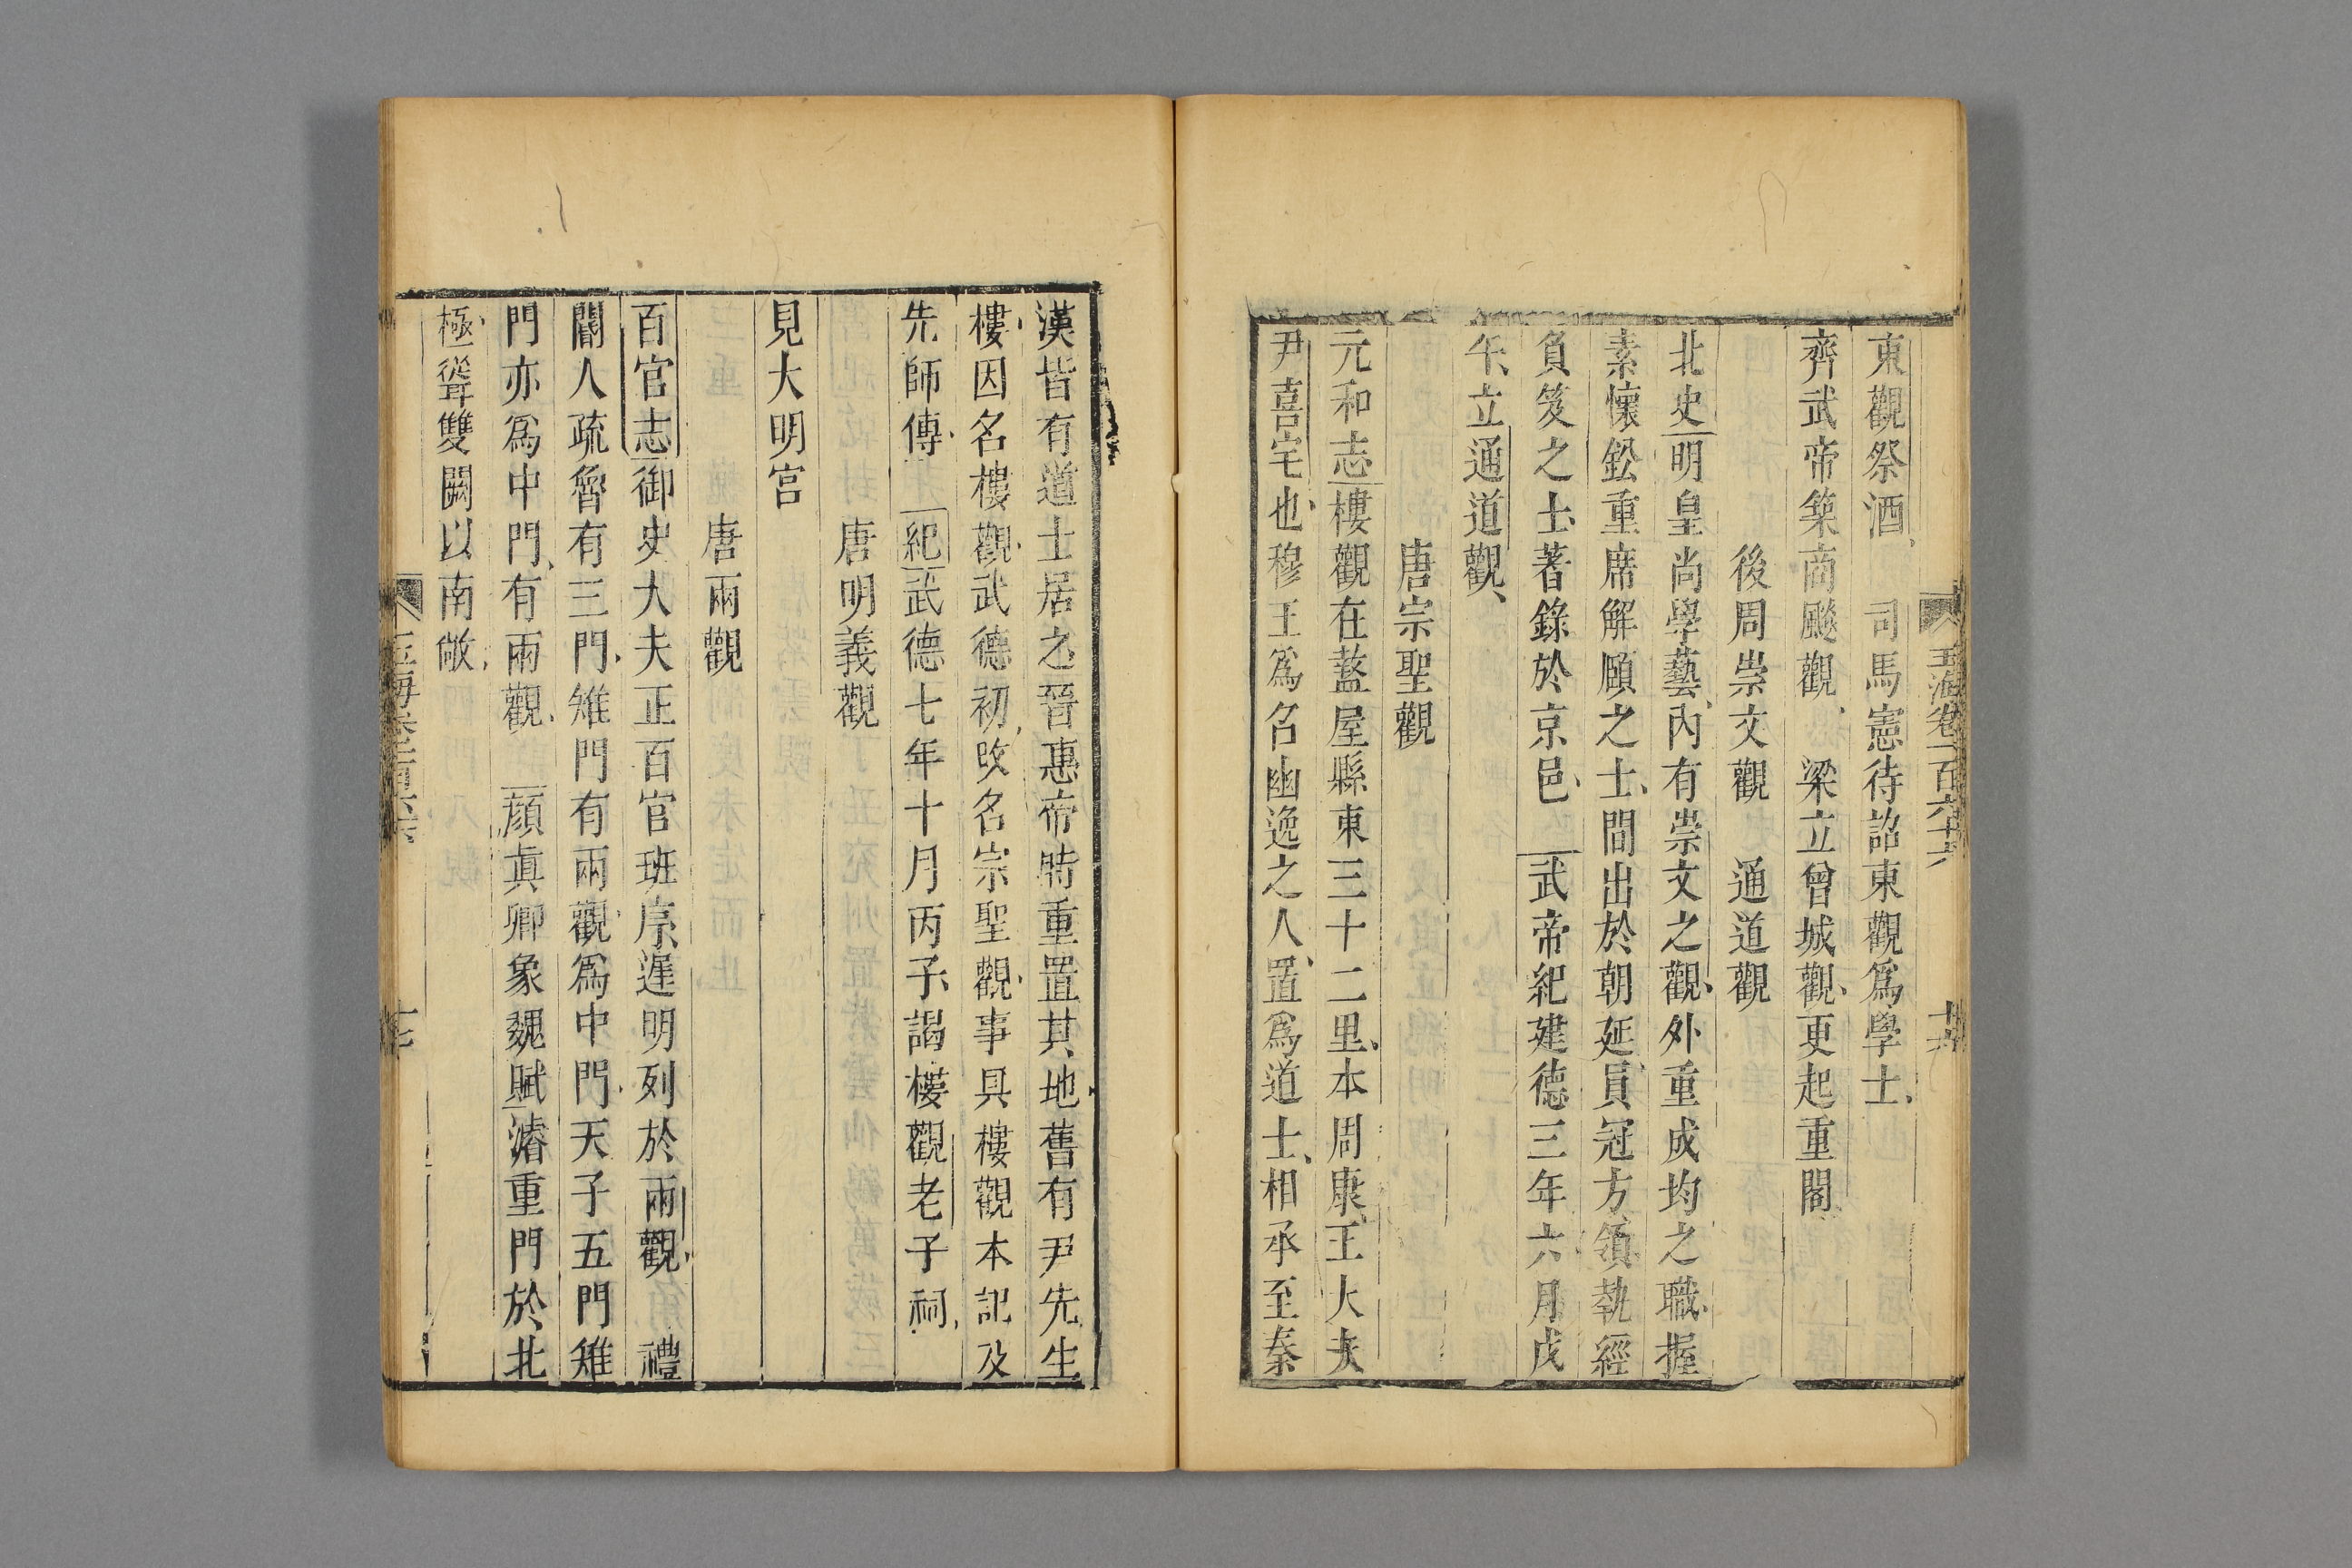 玉海卷一百六十六
東觀祭酒　司馬憲待詔東觀爲學士
齊武帝築商飇觀　梁立曾城觀更起重閣
後周崇文觀　通道觀
北史明皇尚學藝內有崇文之觀外重成均之職握
素懷鈆重席解頤之士間出於朝延員冠方領執經
負笈之士著錄於京邑　武帝紀建德三年六月戊
午立通道觀
唐宗聖觀
元和志樓觀在盩屋縣東三十二里本周康王大夫
尹喜宅也穆王爲名幽逸之人置爲道士相承至秦
漢皆有道士居之晉惠帝時重置其地舊有尹先生
樓因名樓觀武德初改名宗聖觀事具樓觀本記及
先師傳　紀武德七年十月丙子謁樓觀老子祠
唐明義觀
見大明宮
唐兩觀
百官志御史大夫正百官班序遲明列於兩觀　禮
閽人疏魯有三門雉門有兩觀爲中門天子五門雉
門亦爲中門有兩觀　顔眞卿象魏賦濬重門於北
極聳雙闕以南敞
玉海卷一百六十六
十七